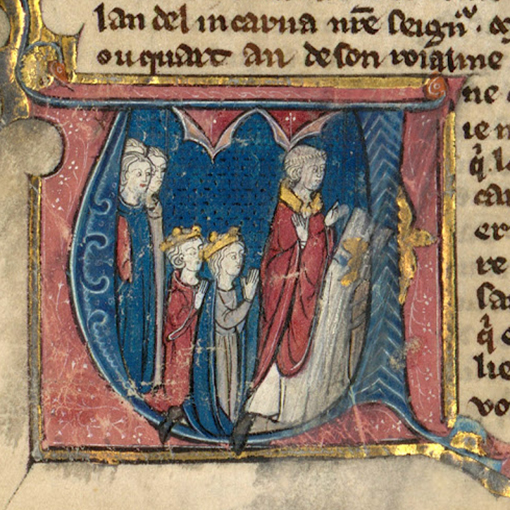 lan del incarna nr̃e seign᷑. &
ou quart an de son roialme
ne
ie n
q̃l. l
ca
er
re
sa
q̃
lie
vo